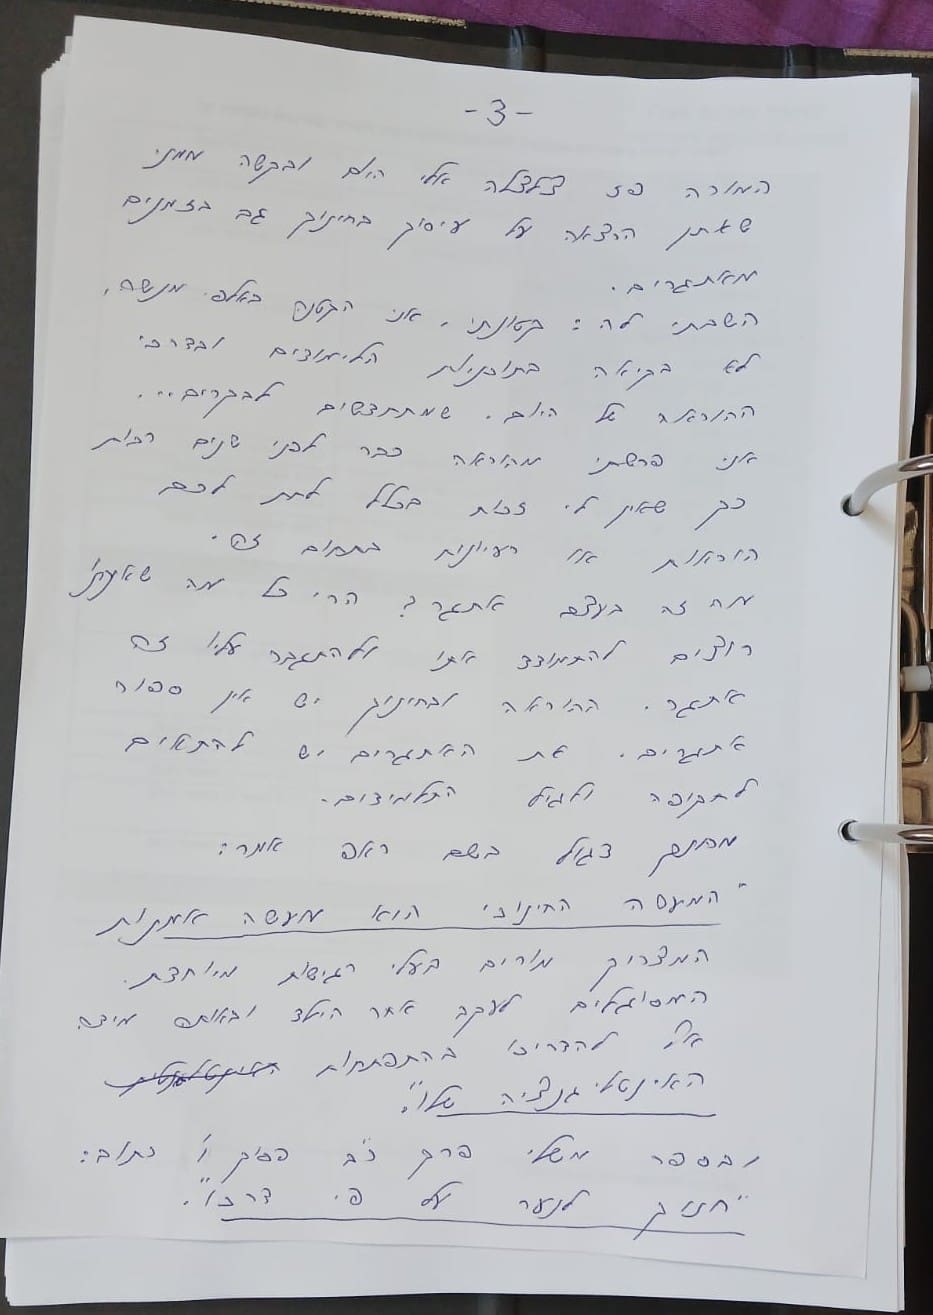 -3-
המורה פז צלצלה אלי היום ובקשה ממני
שאתן הרצאה על עיסוק בחינוך גם בזמנים
מאתגרים.
השבתי לה: קטונתי, אני הקטנה באלפי מנשה,
לא בקיאה בתוכניות הלימודים ובדרכי
ההוראה של היום. שמתחדשים לבקרים...
אני פרשתי מהוראה כבר לפני שנים רבות
כך שאין לי זכות בכלל לתת לכם
הוראות או רעיונות בתחום זה.
מה זה בעצם אתגר? הרי כל מה שאנחנו
רוצים להתמודד אתו ולהתגבר עליו זה
אתגר. ההוראה ובחינוך יש אין ספור
אתגרים. את האתגרים יש להתאים
לתקופה ולגיל התלמידים.
מחנך דגול בשם ראפ אמר:
"המעשה החינוכי הוא מעשה אמנות
המצריך מורים בעלי רגישות מיוחדת.
המסוגלים לעקב אחר הילד ובאותה מידה
להדריכו בהתפתחות
האינטליגנציה שלו".
ובספר משלי פרק כ"ב פסוק ו' כתוב:
"חנוך לנער על פי דרכו".